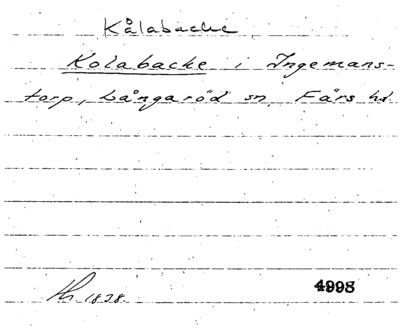 Kålabacke
Kolabacke i Ingemans-
torp, Långaröd sn, Färs hd.
1828 4998